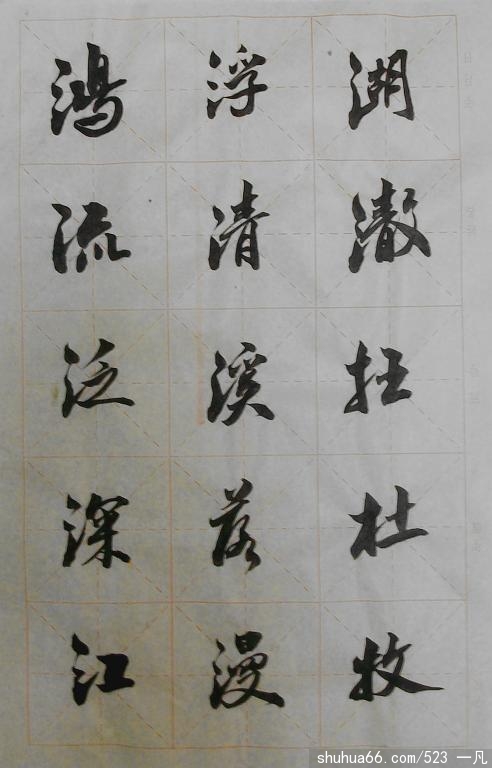 湖澈杜牧
浮清溪落漫
鴻流泛深江
shuhua66.com/523 一凡